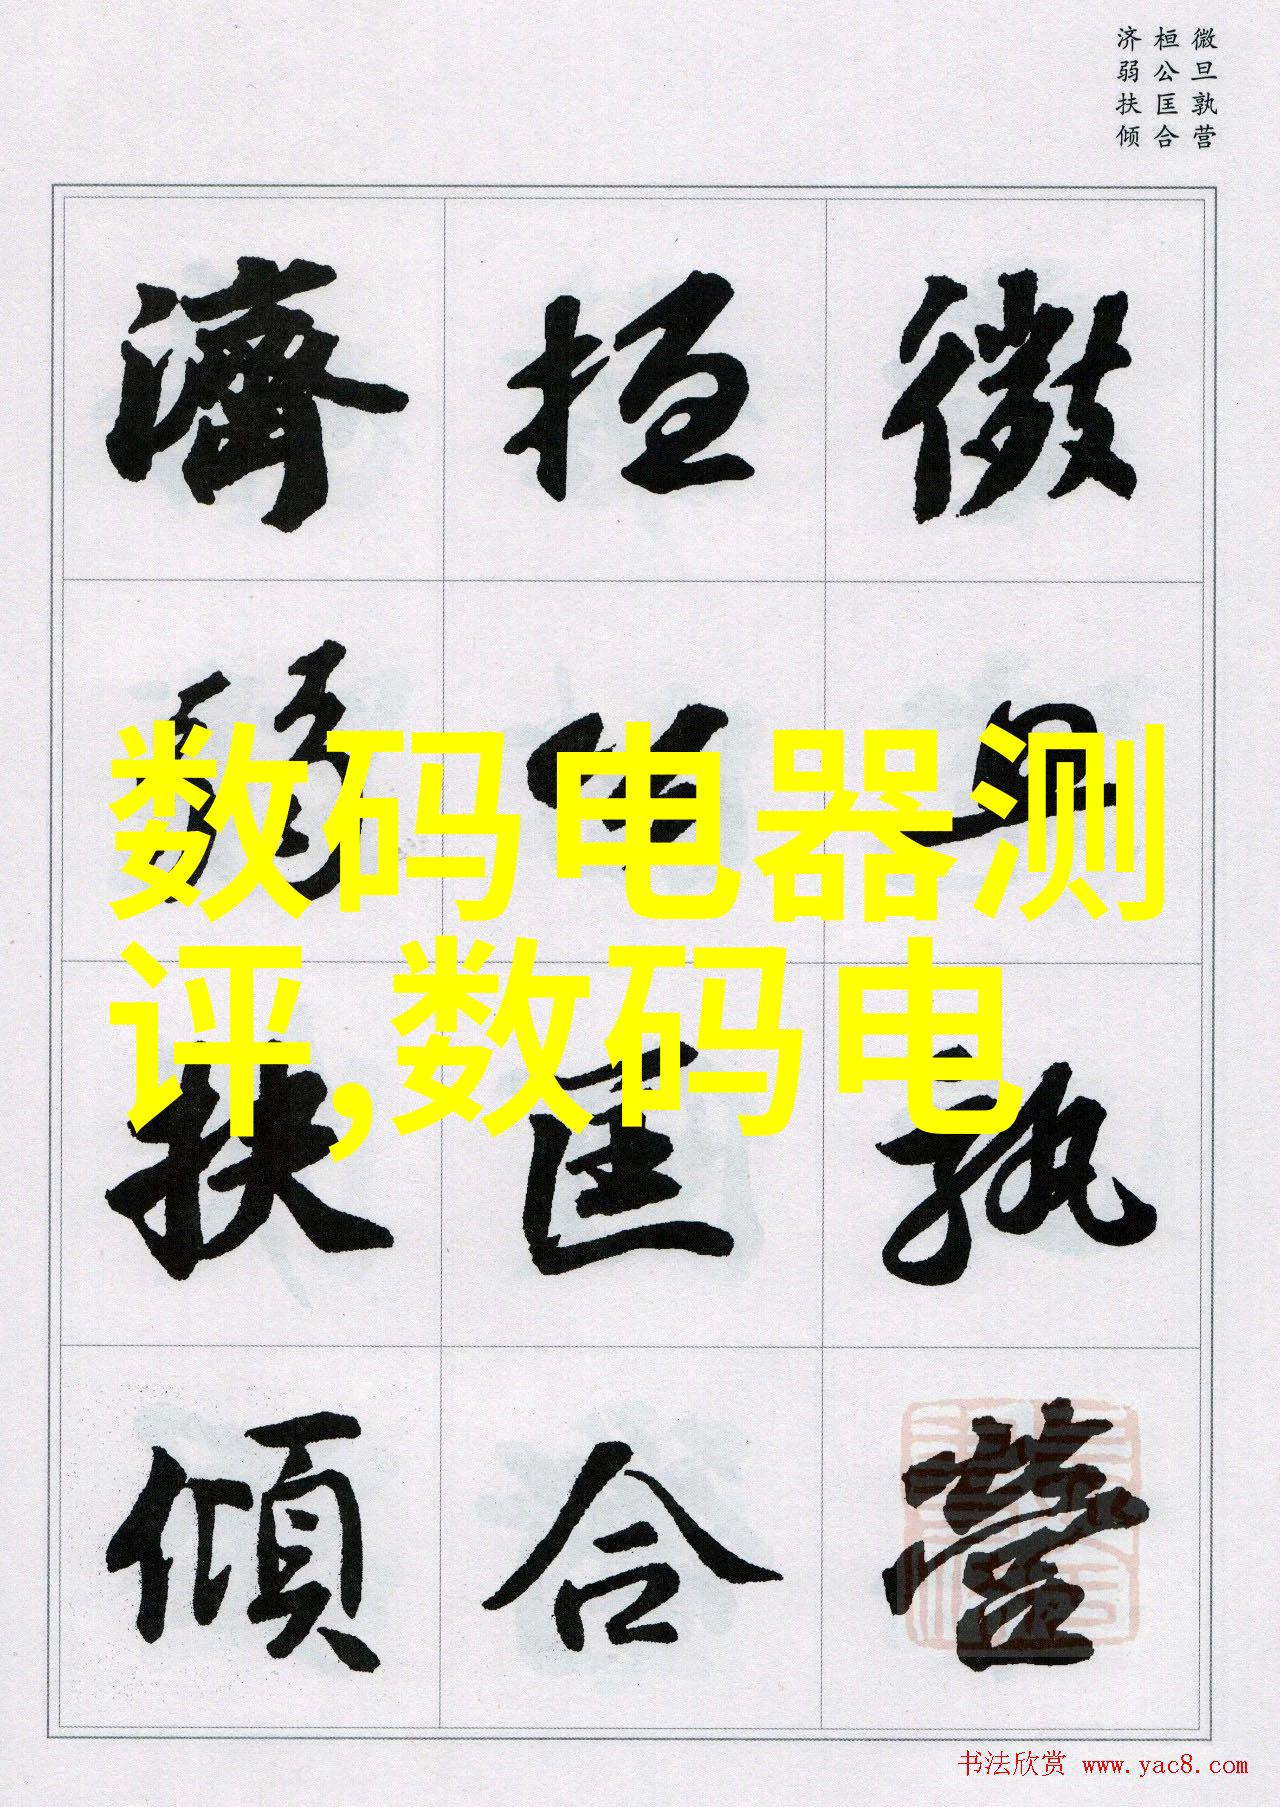 微旦孰营
桓公匡合
济弱扶倾
微旦孰營
桓公匡合
濟弱扶傾
数码电器测
评,数码电
书法欣赏 www.yac8.com